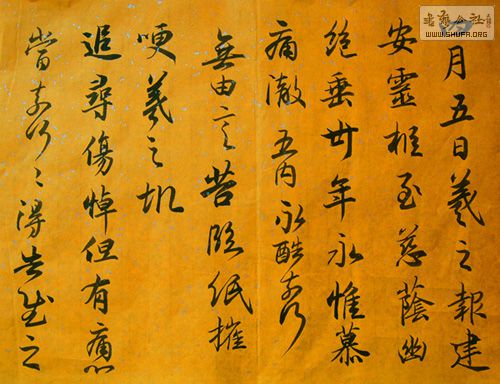 月五日羲之報建
安靈柩至慈蔭幽
絕垂卅年永惟慕
痛徹五內永酷奈何
無由言苦臨紙摧
哽羲之
追尋傷悼但有痛心
當奈何〻得告慰之
公社
WWW.SHUFA.ORG